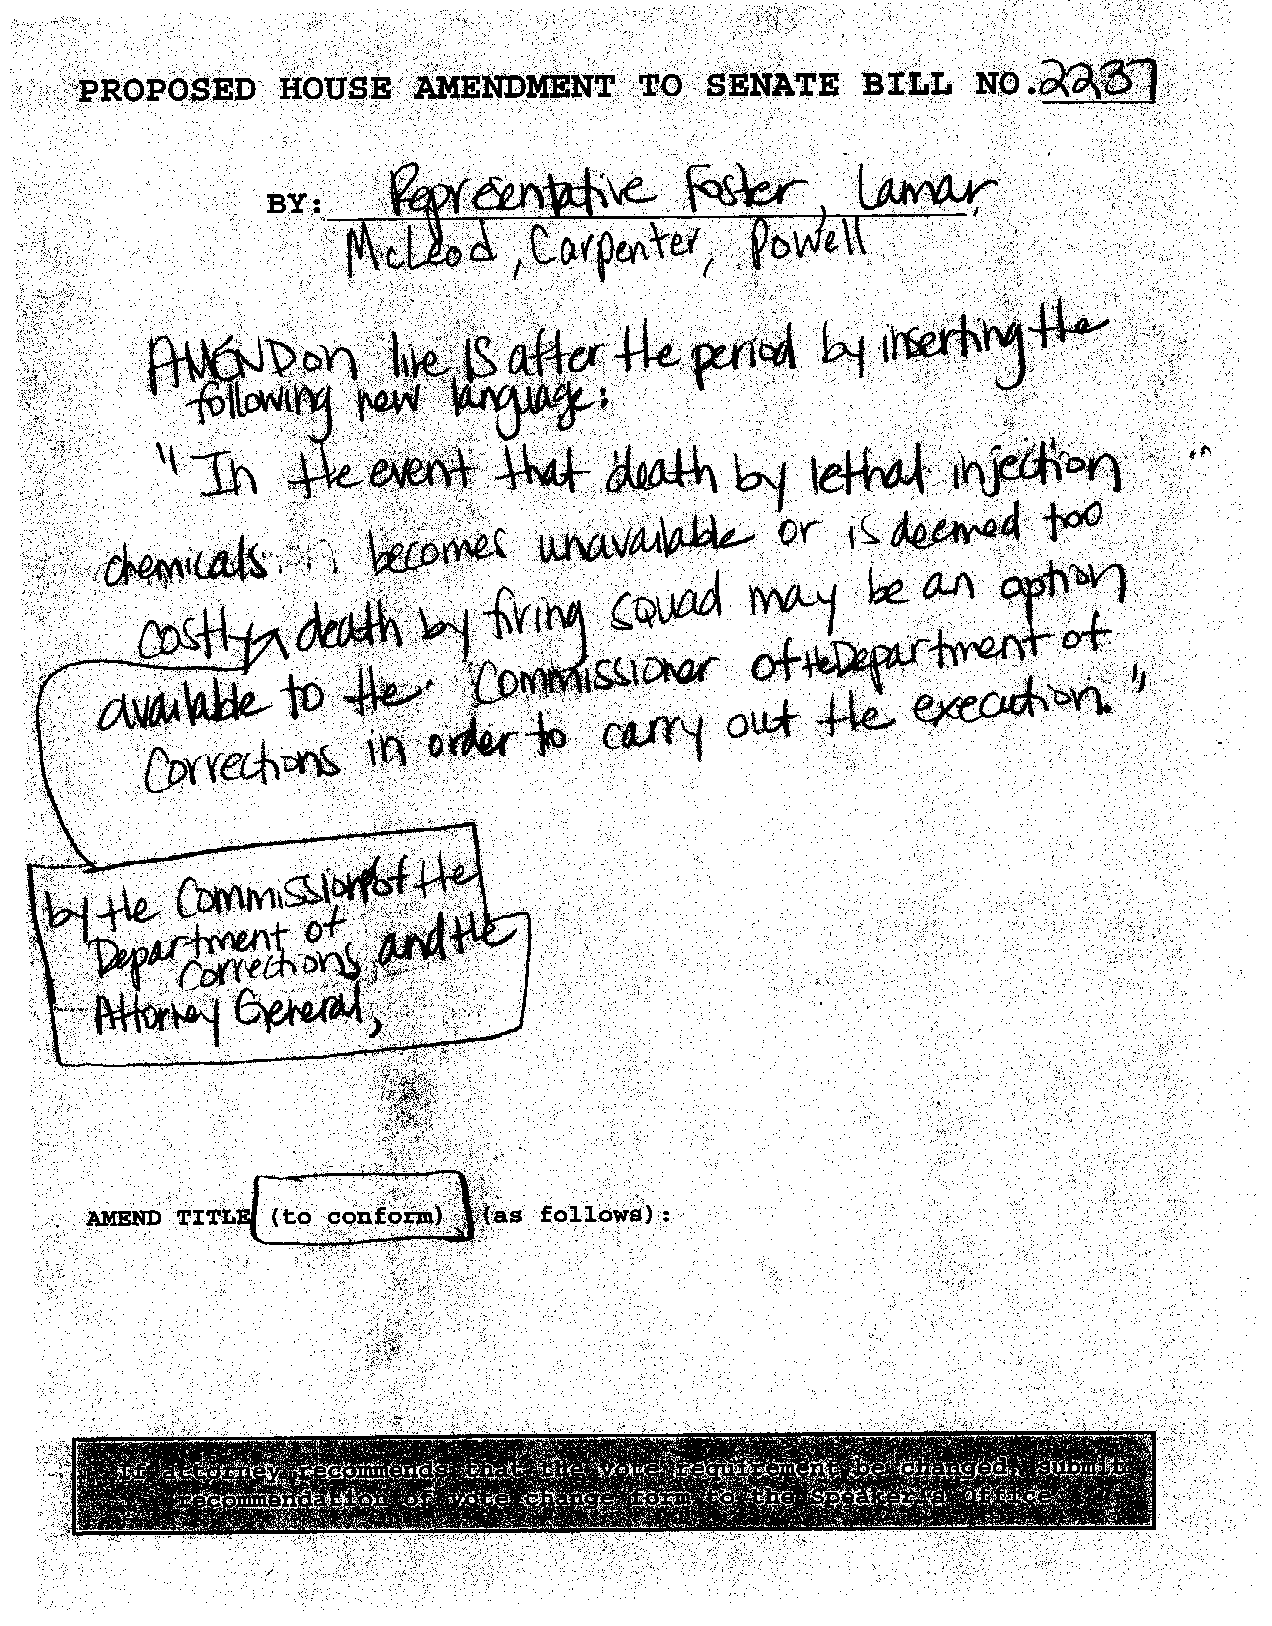 PROPOSED HOUSE AMENDMENT TO SENATE BILL NO. 2237
BY: Representative Foster, Lamar,
McLeod, Carpenter, Powell
AMEND on line 15 after the period by inserting the
following new language:
"In the event that death by lethal injection
chemicals becomes unavailable or is deemed too
costly, death by firing squad may be an option
available to the Commissioner of the Department of
Corrections in order to carry out the execution."
by the Commissioner of the
Department of
Corrections, and the
Attorney General,
AMEND TITLE (to conform) (as follows):
If attorney recommends that the vote requirement be changed, submit
recommendation of vote change form to the Speaker's Office.